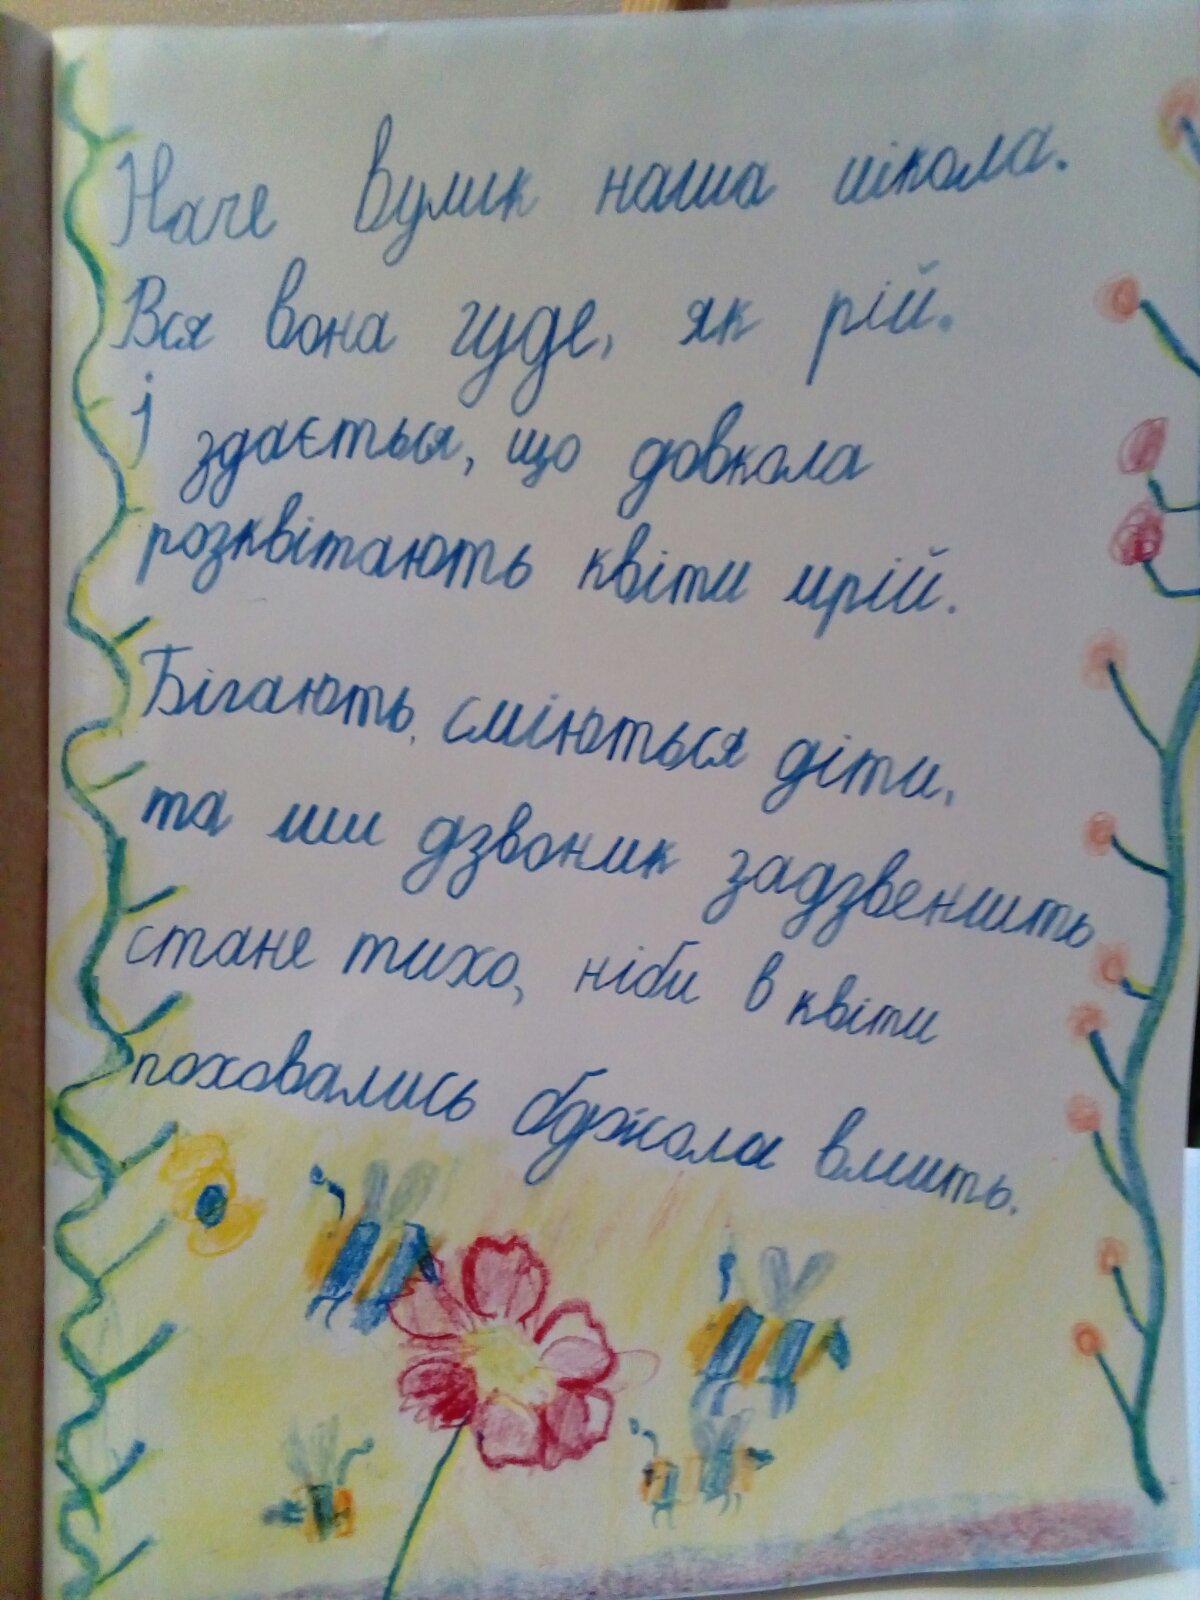 Наче вулик наша школа.
Вся вона гуде, як рій.
І здається, що довкола
розквітають квіти мрій.
Бігають, сміються діти,
та ми дзвоник задзвенить
стане тихо, ніби в квіти
поховались бджола вмить.